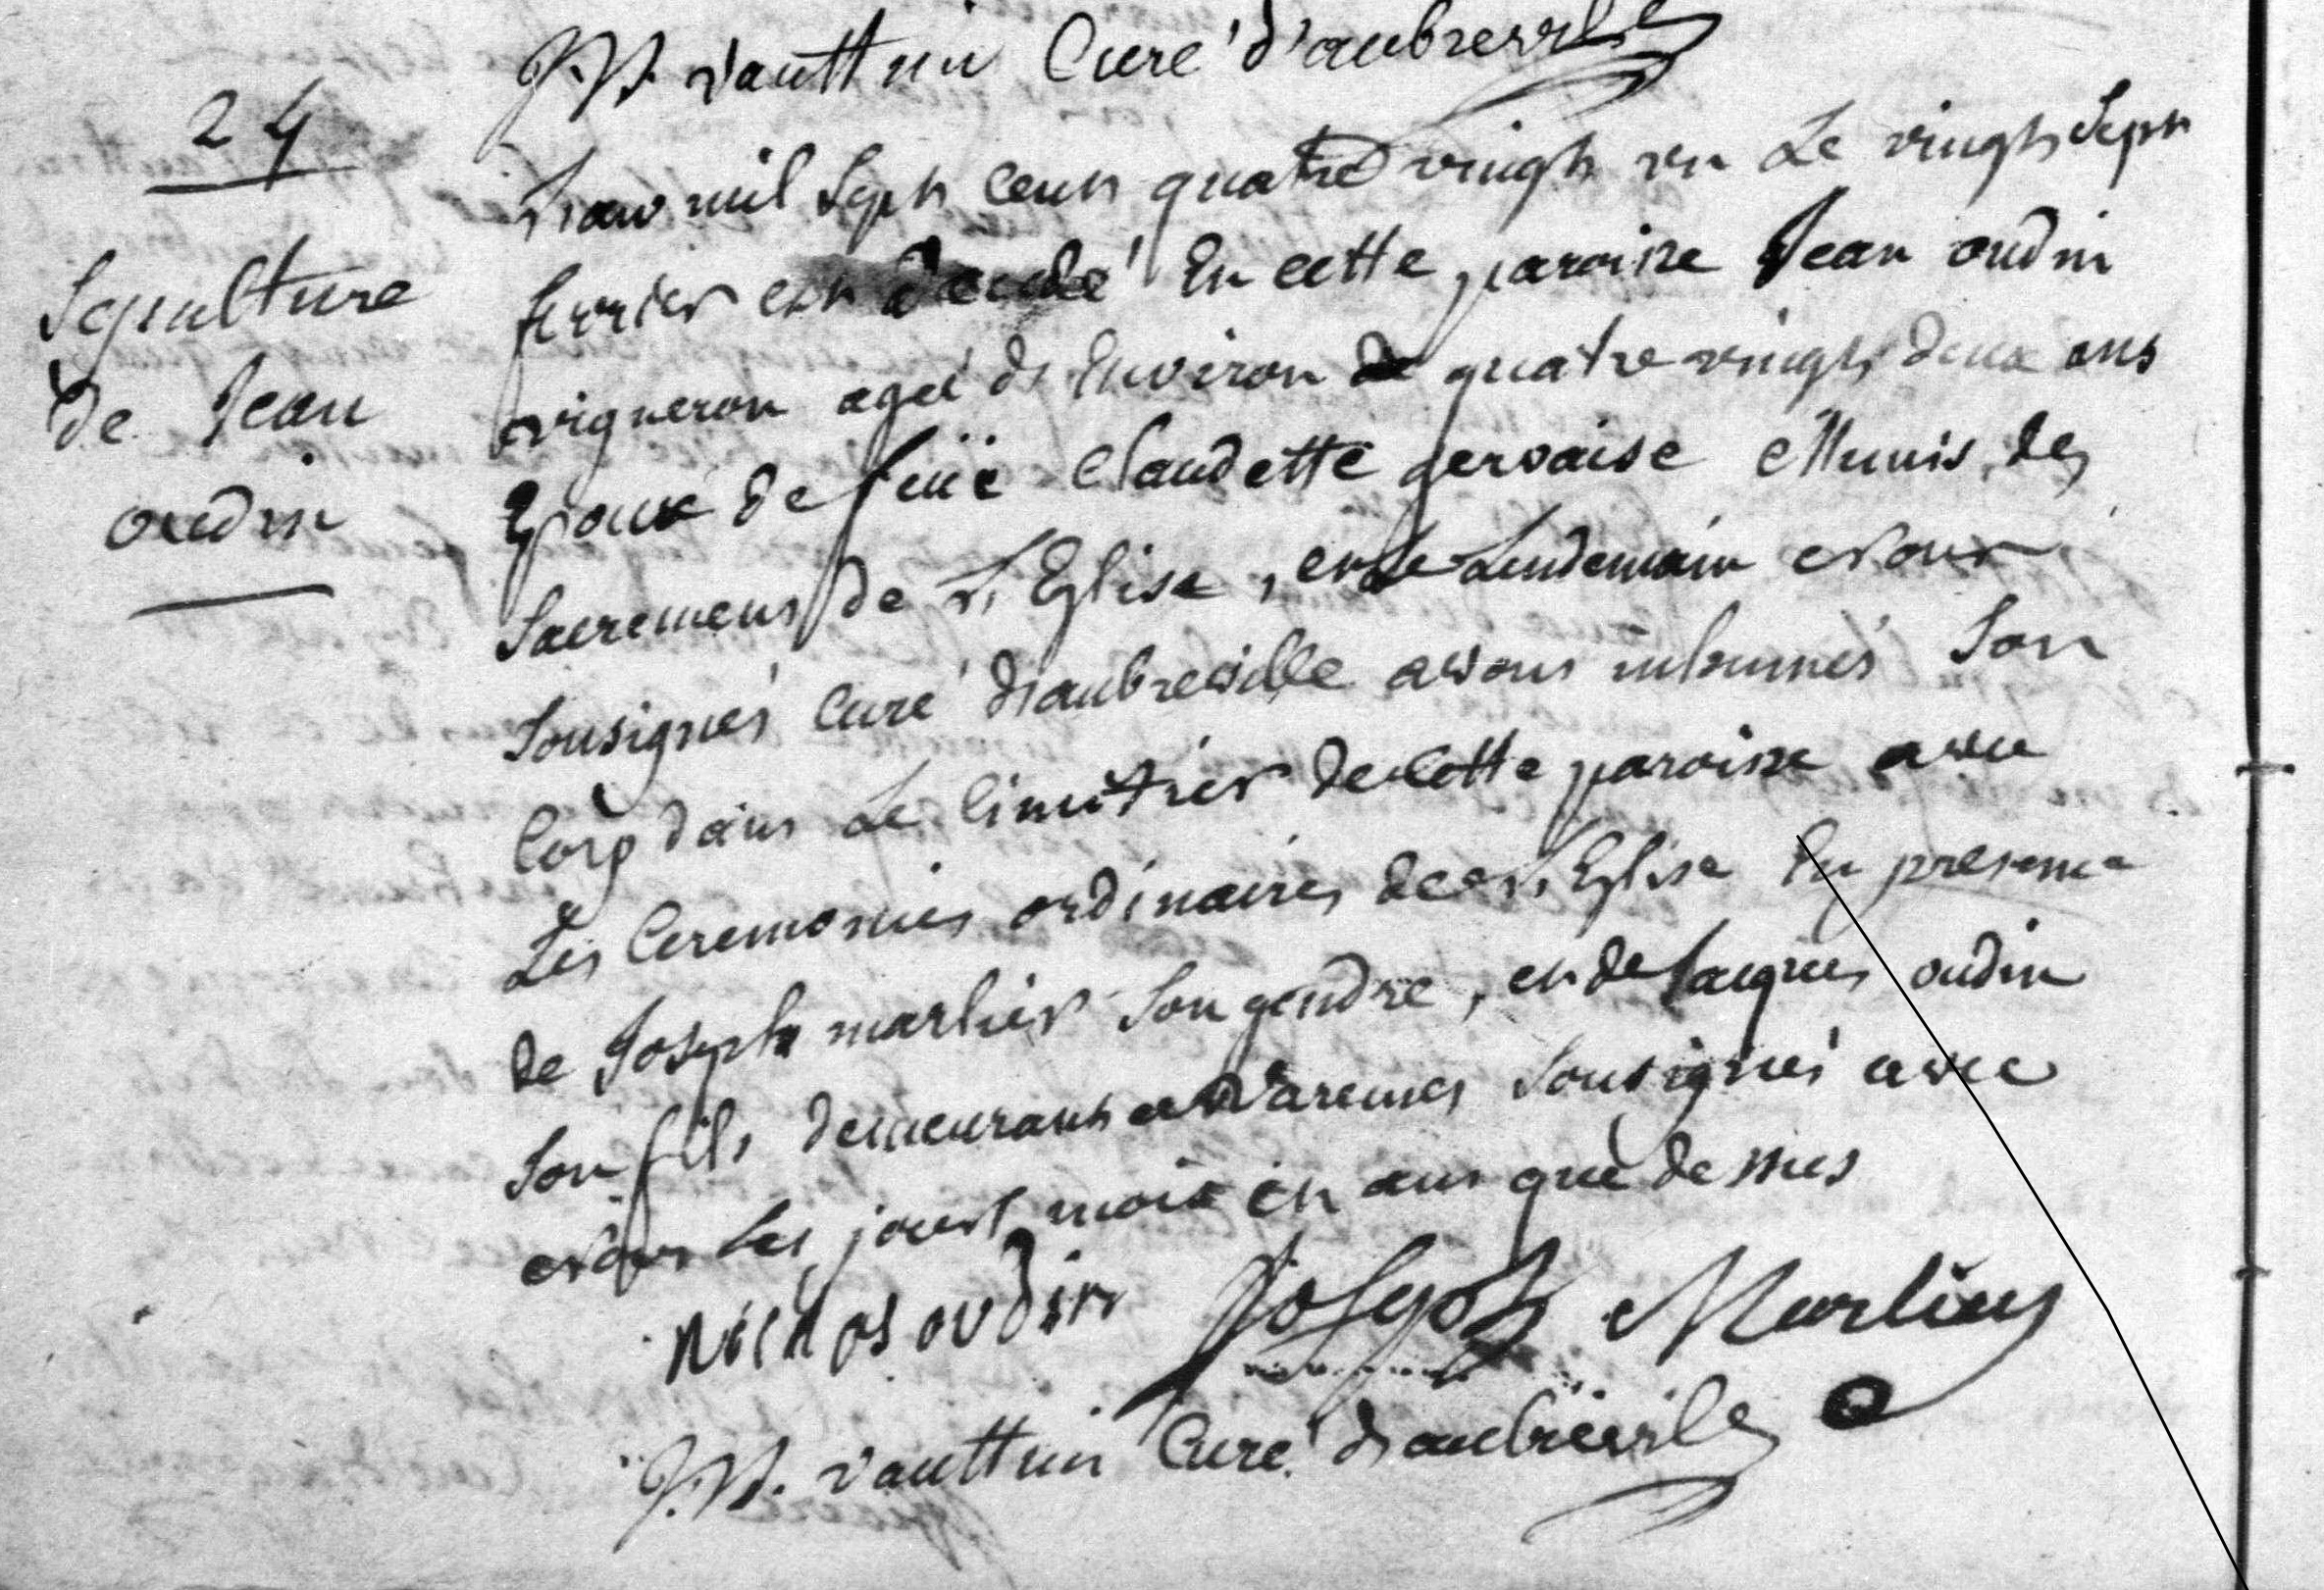 J.N. vauttrin Curé d'aubreville
24
Sepulture
de Jean
oudin
L'an mil Sept Cent quatre vingt un Le vingt Sept
fevrier est decedé En cette paroisse Jean oudin
vigneron agé d'Environ de quatre vingt deux ans
Epoux de feüe Claudette gervaise Munis des
Sacremens de L'Eglise, et le Lendemain Nous
Sousignés Curé d'aubreville avons inhumés Son
Corp dans Le Cimetier de Cette paroisse avec
Les Ceremonies ordinaires de L'Eglise En presence
de Joseph marlier Son gendre, et de Jacques oudin
Son fils demeurant a Varennes Sousignés avec
Nous Les jour mois et ans que dessus
oudin Joseph Marlier
J.N. vauttrin Curé d'aubreville